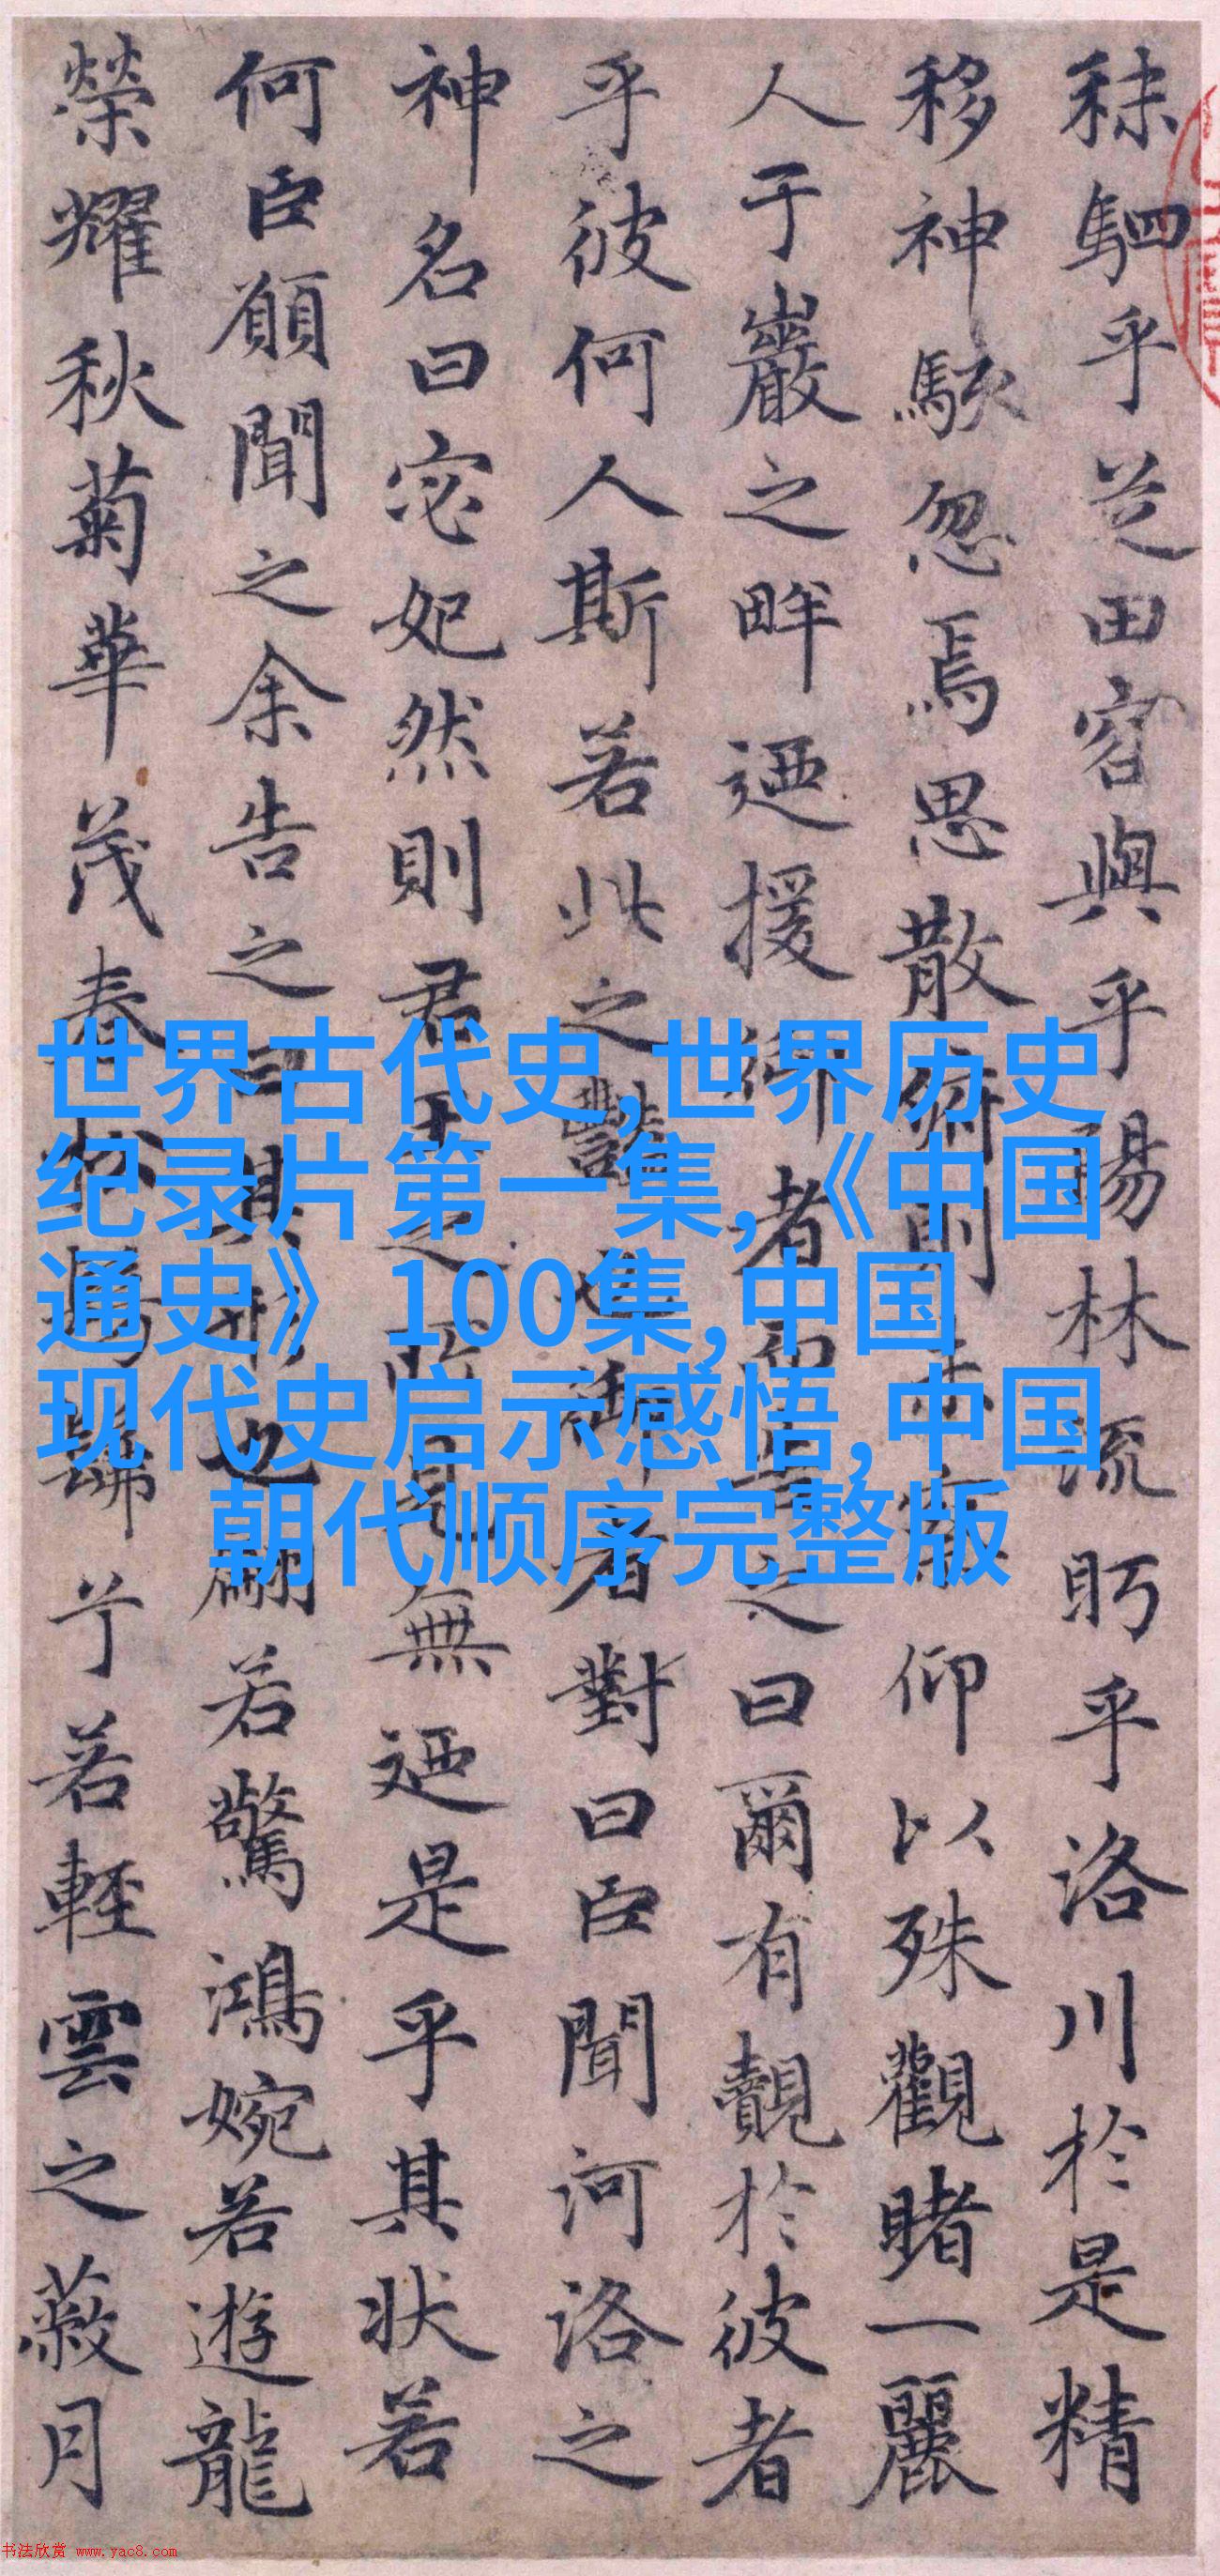 秣駟乎芝田容與乎陽林流眄乎洛川於是精
移神駭忽焉思散俯則未察仰以殊觀睹一麗
人于巖之畔迺援御者而告之曰爾有覿於彼者
乎彼何人斯若此之豔也御者對曰臣聞河洛之
神名曰宓妃然則君王之所見無迺是乎其狀若
何臣願聞之余告之曰其形也翩若驚鴻婉若遊龍
榮耀秋菊華茂春松髣髴兮若輕雲之蔽月
世界古代史,世界历史
纪录片第一集,《中国
通史》100集,中国
现代史启示感悟,中国
朝代顺序完整版
书法欣赏 www.yac8.com